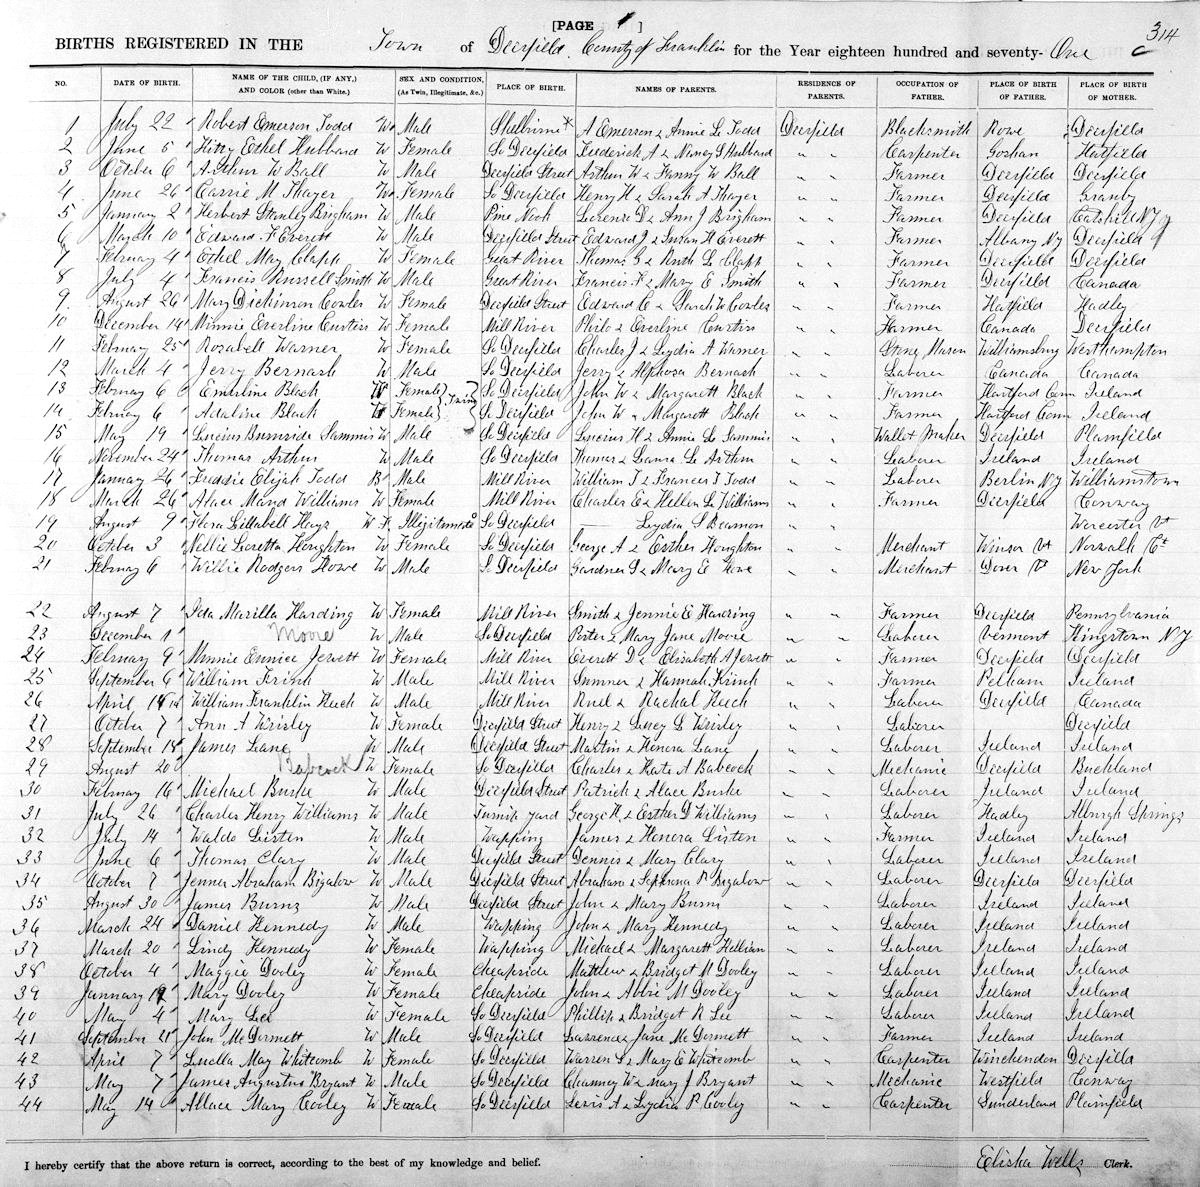 [PAGE 1 ]
314
BIRTHS REGISTERED IN THE Town of Deerfield County of Franklin for the Year eighteen hundred and seventy- One
NO. DATE OF BIRTH. NAME OF THE CHILD, (IF ANY,) AND COLOR (other than White.) SEX AND CONDITION, (As Twin, Illegitimate, &c.) PLACE OF BIRTH. NAMES OF PARENTS. RESIDENCE OF PARENTS. OCCUPATION OF FATHER. PLACE OF BIRTH OF FATHER. PLACE OF BIRTH OF MOTHER.
1 July 22 Robert Emerson Todd W Male Shelburne* A Emerson & Annie L Todd Deerfield Blacksmith Rowe Deerfield
2 June 5 Kitty Ethel Hubbard W Female So Deerfield Frederick A & Nancy S Hubbard " " Carpenter Goshan Hatfield
3 October 6 Arthur W Ball W Male Deerfield Street Arthur W & Fanny W Ball " " Farmer Deerfield Deerfield
4 June 26 Carrie M Thayer W Female So Deerfield Henry H & Sarah A Thayer " " Farmer Deerfield Granby
5 January 2 Herbert Stanley Brigham W Male Pine Nook Lorenzo D & Ann J Brigham " " Farmer Deerfield Catskill NY
6 March 10 Edward F Everett W Male Deerfield Street Edward J & Susan H Everett " " Farmer Albany NY Deerfield
7 Febuary 4 Ethel May Clapp W Female Great River Thomas G & Ruth L Clapp " " Farmer Deerfield Deerfield
8 July 4 Francis Russell Smith W Male Great River Francis F & Mary E Smith " " Farmer Deerfield Canada
9 August 26 Mary Dickinson Cowles W Female Deerfield Street Edward C & Sarah W Cowles " " Farmer Hatfield Hadley
10 December 14 Minnie Everline Curtiss W Female Mill River Philo & Everline Curtiss " " Farmer Canada Deerfield
11 Febuary 25 Rozabell Warner W Female So Deerfield Charles J & Lydia A Warner " " Stone Mason Williamsburg Westhampton
12 March 4 Jerry Bernash W Male So Deerfield Jerry & Alphosa Bernash " " Laborer Canada Canada
13 Febuary 6 Emerline Black W Female } Twins So Deerfield John W & Margarett Black " " Farmer Hartford Conn Ireland
14 Febuary 6 Adaline Black W Female } So Deerfield John W & Margarett Black " " Farmer Hartford Conn Ireland
15 May 19 Lucius Burnside Sammis W Male So Deerfield Lucius H & Annie L Sammis " " Wallet Maker Deerfield Plainfield
16 November 24 Thomas Arthur W Male So Deerfield Thomas & Laura L Arthur " " Laborer Ireland Ireland
17 January 26 Freddie Elijah Todd B Male Mill River William T & Frances T Todd " " Laborer Berlin NY Williamstown
18 March 26 Alace Maud Williams W Female Mill River Charles E & Hellen L Williams " " Farmer Deerfield Conway
19 August 9 Flora Lillabell Hays W F. Illigitimate So Deerfield —— Lydia S Beamon " " Worcester Vt
20 October 3 Nellie Loretta Houghton W Female So Deerfield George A & Esther Houghton " " Merchant Winsor Vt Norwalk Ct
21 Febuary 6 Willie Rodgers Howe W Male So Deerfield Gardner G & Mary E Howe " " Merchant Dover Vt New York
22 August 7 Ida Marilla Harding W Female Mill River Smith & Jennie E Harding " " Farmer Deerfield Pennsylvania
23 December 1 Moore W Male So Deerfield Porter & Mary Jane Moore " " Laborer Vermont Kingstown NY
24 Febuary 9 Minnie Eunice Jewett W Female Mill River Everett D & Elisabeth A Jewett " " Farmer Deerfield Deerfield
25 September 6 William Frink W Male Mill River Sumner & Hannah Frink " " Farmer Pelham Ireland
26 April 14 William Franklin W Male Mill River & Rachal " " Laborer Deerfield Canada
27 October 7 Ann A Wrisley W Female Deerfield Street Henry & Lucy L Wrisley " " Laborer Deerfield
28 September 18 James Lane W Male Deerfield Street Martin & Honora Lane " " Laborer Ireland Ireland
29 August 20 Babcock W Female So Deerfield Charles & Kate A Babcock " " Mechanic Deerfield Buckland
30 Febuary 16 Michael Burke W Male Deerfield Street Patrick & Alace Burke " " Laborer Ireland Ireland
31 July 26 Charles Henry Williams W Male Turnip yard George H & Esther D Williams " " Laborer Hadley Alburgh Springs
32 July 14 Waldo Listen W Male Wapping James & Honora Listen " " Farmer Ireland Ireland
33 June 6 Thomas Clary W Male Deerfield Street Dennis & Mary Clary " " Laborer Ireland Ireland
34 October 7 Jenner Abraham Bigalow W Male Deerfield Street Abraham & P Bigalow " " Laborer Deerfield Deerfield
35 August 30 James Burnz W Male Deerfield Street John & Mary Burns " " Laborer Ireland Ireland
36 March 24 Daniel Kennedy W Male Wapping John & Mary Kennedy " " Laborer Ireland Ireland
37 March 20 Lindy Kennedy W Female Wapping Michael & Margarett " " Laborer Ireland Ireland
38 October 4 Maggie Dooley W Female Cheapside Matthew & Bridget M Dooley " " Laborer Ireland Ireland
39 January 19 Mary Dooley W Female Cheapside John & Abbie M Dooley " " Laborer Ireland Ireland
40 May 4 Mary Lee W Female So Deerfield Phillip & Bridget R Lee " " Laborer Ireland Ireland
41 September 21 John McDermett W Male So Deerfield Lawrence & Jane McDermett " " Farmer Ireland Ireland
42 April 7 Luella May Whitcomb W Female So Deerfield Warren S & Mary E Whitcomb " " Carpenter Winchendon Deerfield
43 May 7 James Augustus Bryant W Male So Deerfield Chauncy W & Mary J Bryant " " Mechanic Westfield Conway
44 May 14 Allace Mary Cooley W Female So Deerfield Lewis A & Lydia P Cooley " " Carpenter Sunderland Plainfield
I hereby certify that the above return is correct, according to the best of my knowledge and belief. Elisha Wells Clerk.